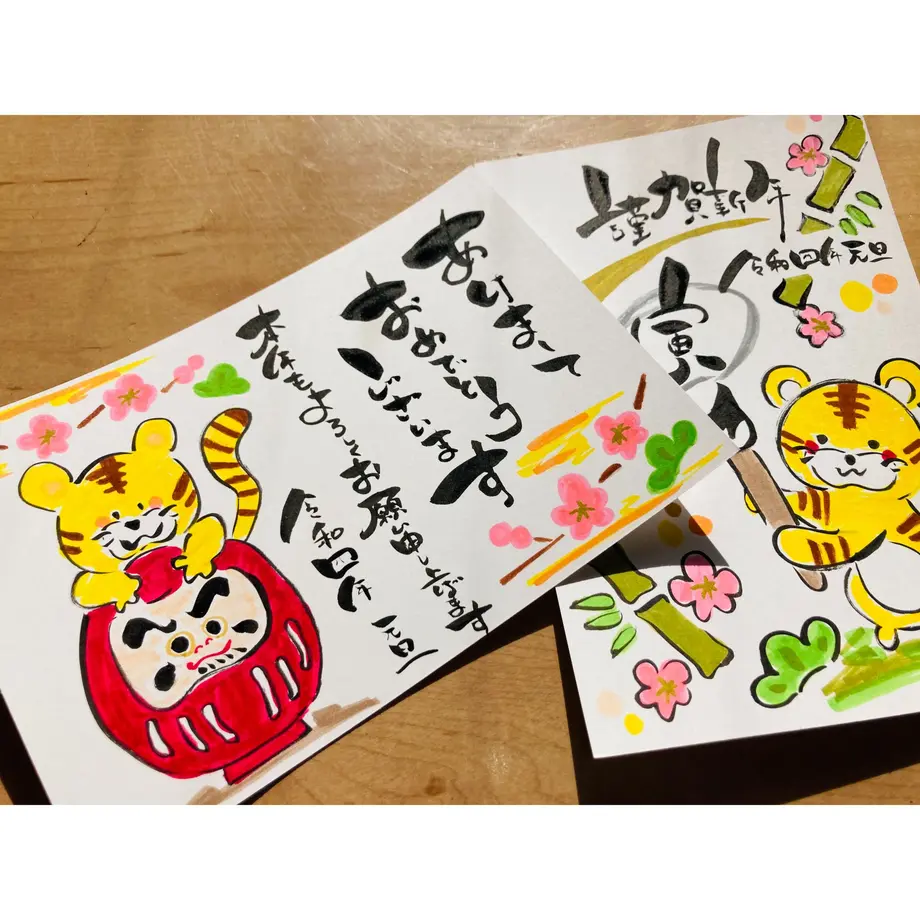 あけまして
おめでとう
ございます
本年もよろしくお願い申し上げます
令和四年 元旦
謹賀新年
令和四年元旦
寅